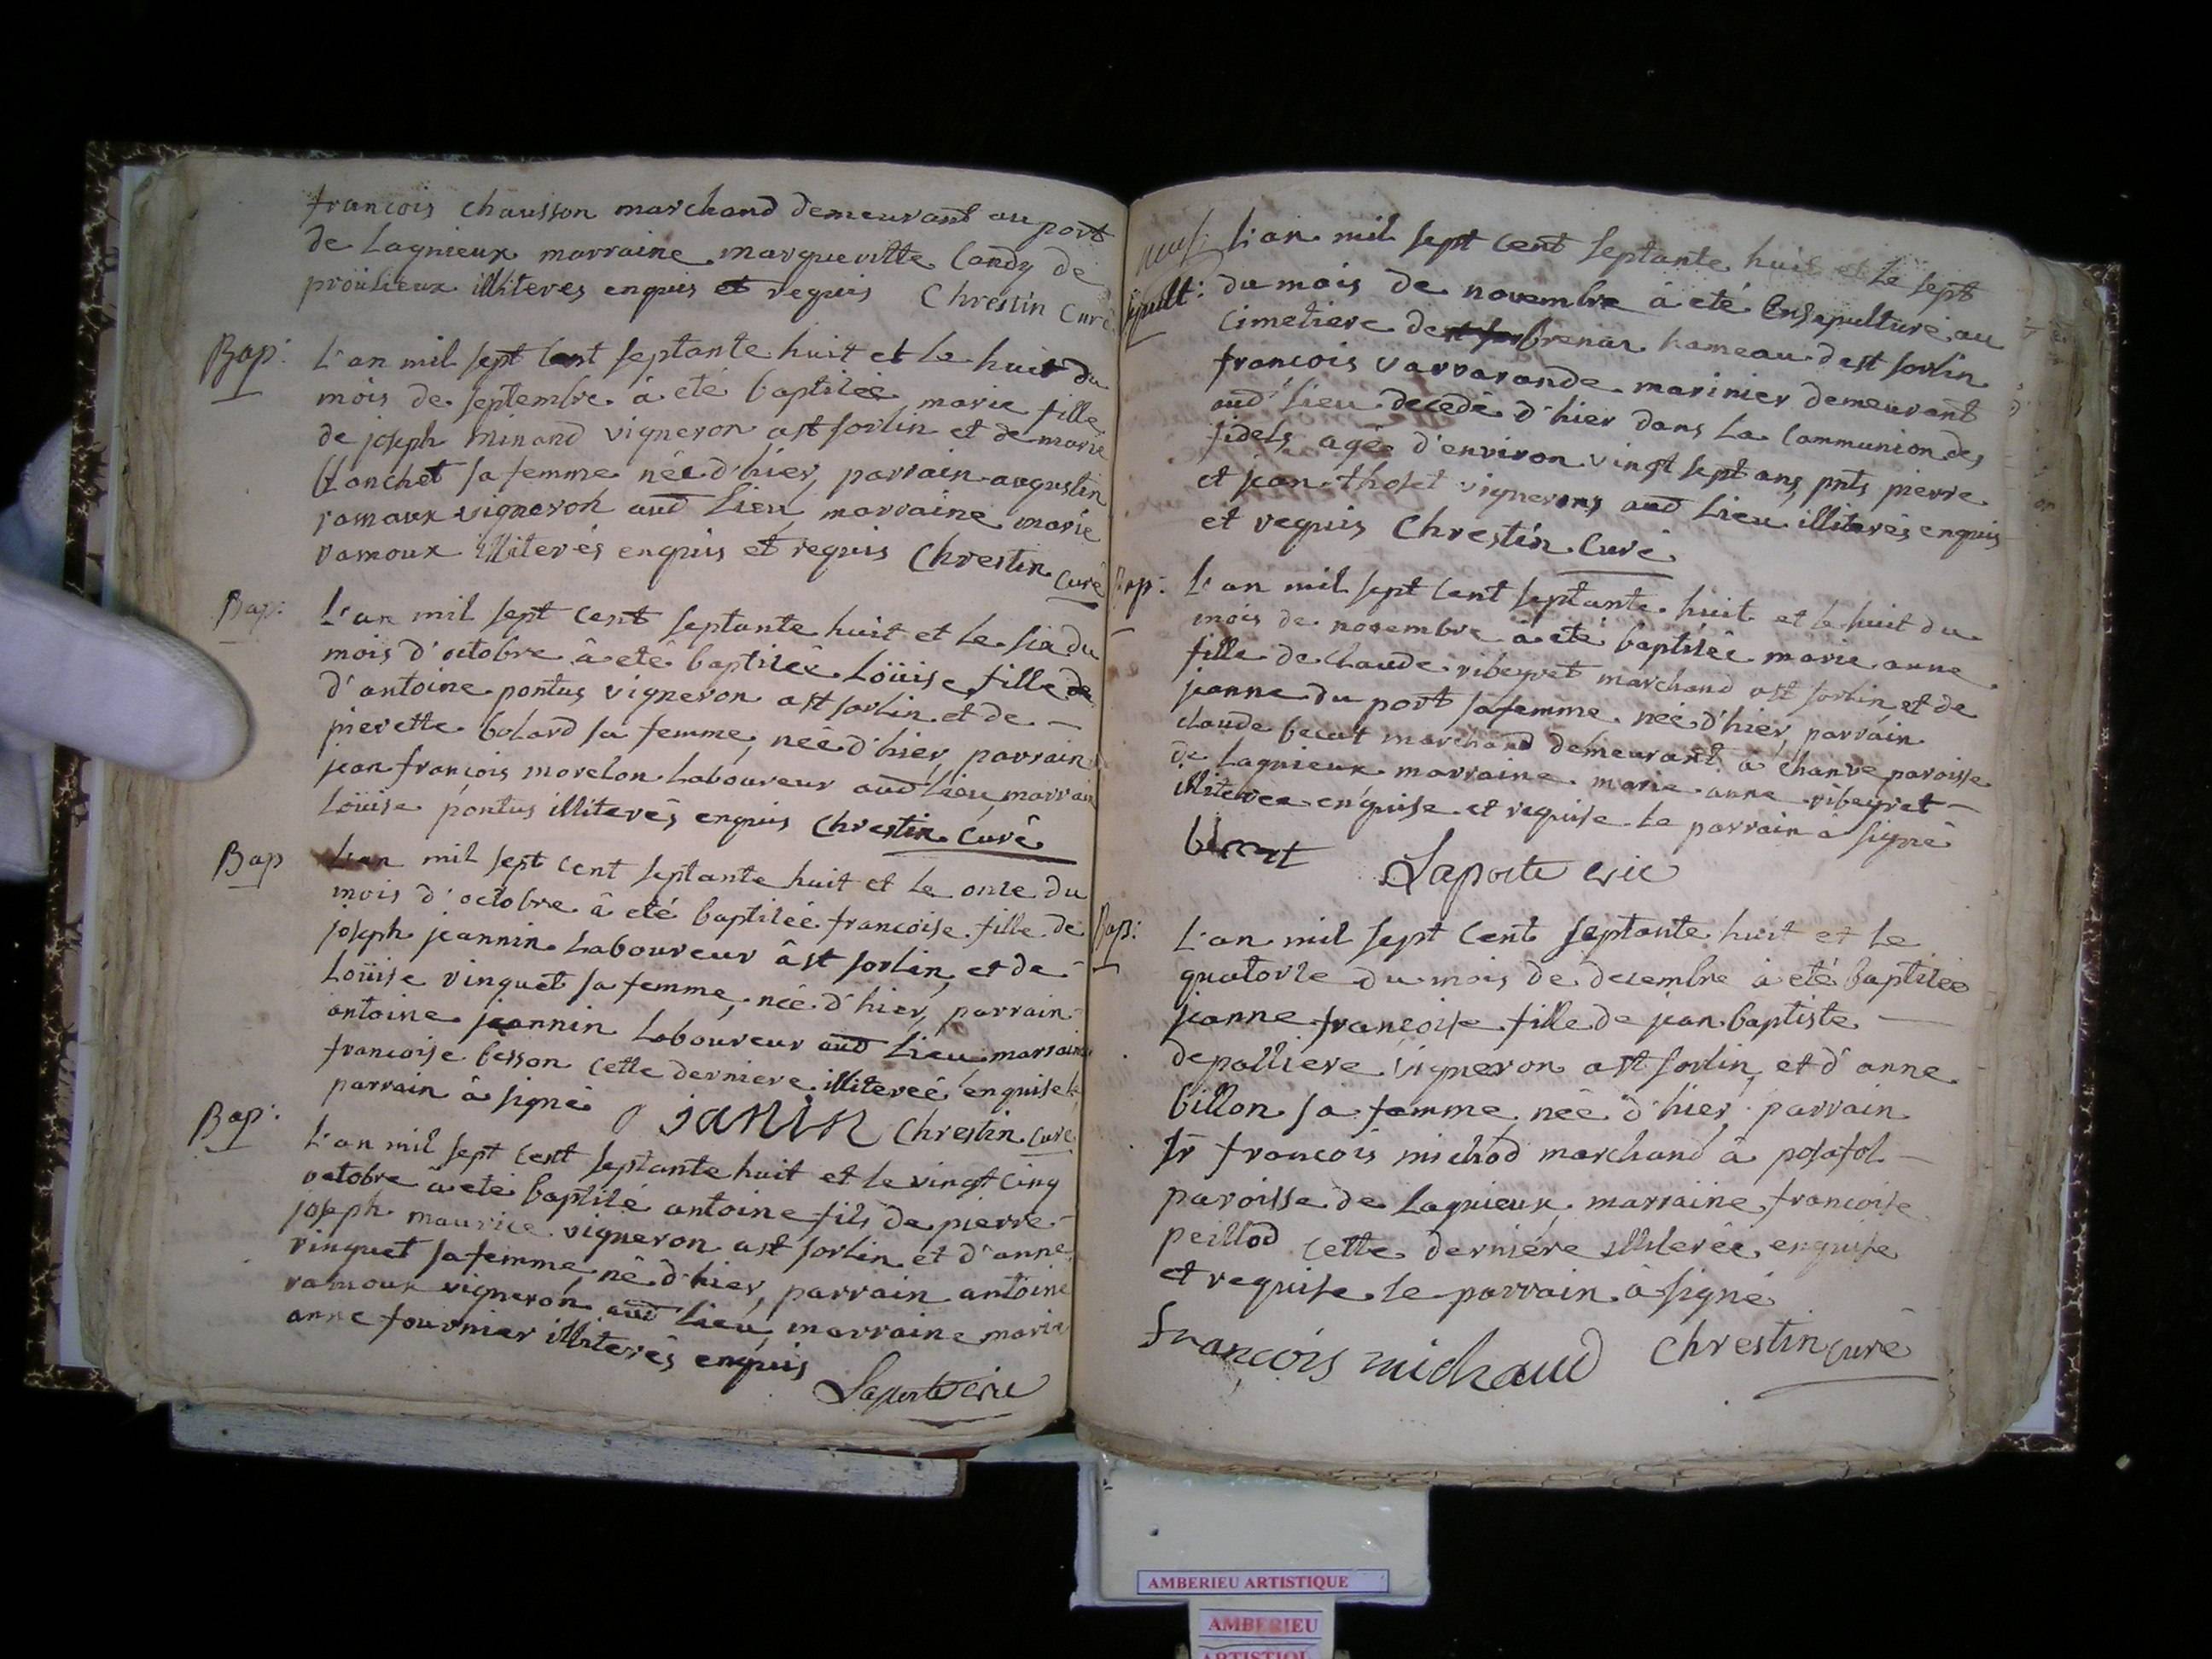 francois chausson marchand demeurant au port
de Lagnieux marraine margueritte Candy de
proulieux illiteres enquis et requis Chrestin Curé
Bap: L'an mil sept cent septante huit et le huit du
mois de septembre à eté baptiseé marie fille
de joseph minand vigneron a st sorlin et de marie
blanchet sa femme née d'hier, parrain augustin
ramoux vigneron aud lieu, marraine marie
ramoux illiterés enquis et requis Chrestin curé
Bap: L'an mil sept cent septante huit et le six du
mois d'octobre à eté baptiseé Loüise fille de
d'antoine pontus vigneron a st sorlin et de
pierette bolard sa femme, neé d'hier, parrain
jean françois morelon Laboureur aud lieu, marrain
Loüise pontus illiterés enquis Chrestin Curé
Bap L'an mil sept cent septante huit et le onze du
mois d'octobre à eté baptiseé francoise fille de
joseph jeannin Laboureur â st sorlin, et de
Loüise vinquet sa femme, neé d'hier, parrain
antoine jeannin Laboureur aud lieu marraine
francoise besson cette derniere illitereé enquise le
parrain à signé janin Chrestin Curé
Bap: L'an mil sept cent septante huit et le vingt cinq
octobre à eté baptisé antoine fils de pierre
joseph maurice vigneron a st sorlin et d'anne
vinquet sa femme, né d'hier, parrain antoine
ramoux vigneron aud lieu, marraine marie
anne fournier illiterés enquis
Laporte vic
L'an mil sept cent septante huit et le sept
sepult: du mois de novembre à eté Ensepulturé au
cimetiere de brenaz hameau de st sorlin
francois varvarande marinier demeurant
aud lieu decedé d'hier dans la Communion des
fidels agée d'environ vingt sept ans, pnts pierre
et jean thoset vignerons aud lieu illiterés enquis
et requis Chrestin Curé
Bap: L'an mil sept cent septante huit et le huit du
mois de novembre à eté baptiseé marie anne
fille de claude ribeyret marchand a st sorlin et de
jeanne du port sa femme neé d'hier, parrain
claude becat marchand demeurant à chanve paroisse
de Lagnieux marraine marie anne ribeyret
illitereé enquise et requise le parrain à signé
Laporte vic
Bap: L'an mil sept cent septante huit et le
quatorze du mois de decembre à eté baptiseé
jeanne francoise fille de jean baptiste
depalliere vigneron a st sorlin, et d'anne
billon sa femme neé d'hier, parrain
sr francois michod marchand à posafol
paroisse de Lagnieux, marraine francoise
peillod cette derniére illitereé enquise
et requise le parrain à signé
françois michaud Chrestin curé
AMBERIEU ARTISTIQUE
AMBERIEU
ARTISTIQU